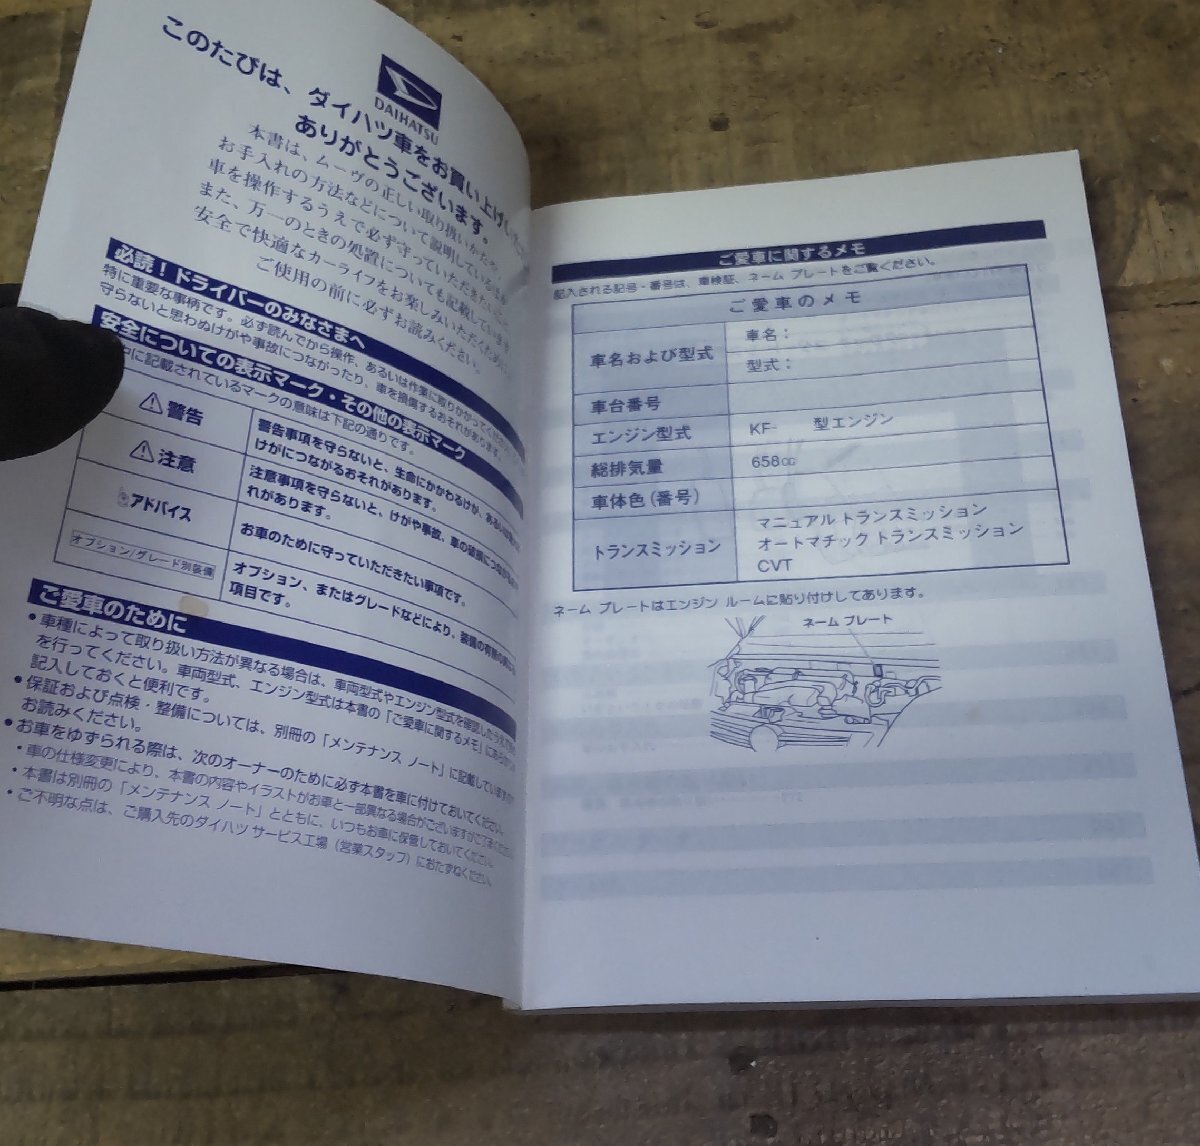 DAIHATSU
このたびは、ダイハツ車をお買い上げいただ
ありがとうございます。
本書は、ムーヴの正しい取り扱いかたや、
お手入れの方法などについて説明している
車を操作するうえで必ず守っていただきたい
また、万一のときの処置についても記載しています
安全で快適なカーライフをお楽しみいただくため
ご使用の前に必ずお読みください。
必読！ドライバーのみなさまへ
特に重要な事柄です。必ず読んでから操作、あるいは作業に取りかかってください
守らないと思わぬけがや事故につながったり、車を損傷するおそれがあります。
安全についての表示マーク・その他の表示マーク
中に記載されているマークの意味は下記の通りです。
警告
警告事項を守らないと、生命にかかわるけが、ある
けがにつながるおそれがあります。
注意
注意事項を守らないと、けがや事故、車の破損につながる
れがあります。
アドバイス
お車のために守っていただきたい事項です。
オプション/グレード別装備
オプション、またはグレードなどにより、装備の有無の
項目です。
ご愛車のために
●車種によって取り扱い方法が異なる場合は、車両型式やエンジン型式を確認したうえで
を行ってください。車両型式、エンジン型式は本書の「ご愛車に関するメモ」に
記入しておくと便利です。
●保証および点検・整備については、別冊の「メンテナンス ノート」に記載しています
お読みください。
●お車をゆずられる際は、次のオーナーのために必ず本書を車に付けておいてください。
・車の仕様変更により、本書の内容やイラストがお車と一部異なる場合がございますがご了承ください
・本書は別冊の「メンテナンス ノート」とともに、いつもお車に保管しておいてください。
・ご不明な点は、ご購入先のダイハツ サービス工場（営業スタッフ）におたずねください。
ご愛車に関するメモ
記入される記号・番号は、車検証、ネーム プレートをご覧ください。
ご愛車のメモ
車名および型式
車名：
型式：
車台番号
エンジン型式
KF-　　型エンジン
総排気量
658cc
車体色（番号）
トランスミッション
マニュアル トランスミッション
オートマチック トランスミッション
CVT
ネーム プレートはエンジン ルームに貼り付けしてあります。
ネーム プレート